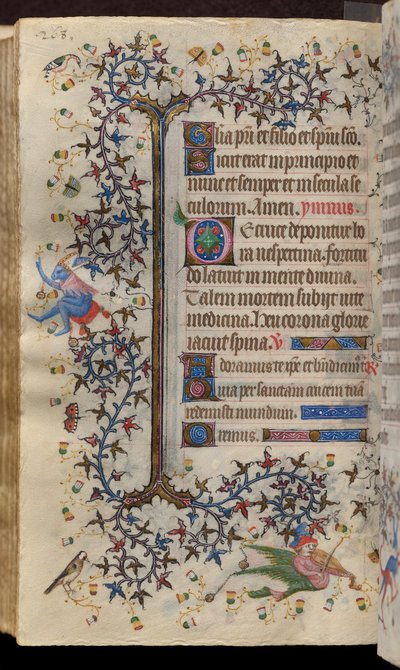 263.
Glia pr̄i et filio et sp̄iui sc̄o.
Sicut erat in principio et
nunc et semper et in secula se
culorum. Amen. ymnus.
De cruce deponitur ho
ra vespertina. fortitu
do latuit in mente divina.
Talem mortem subijt vite
medicina. Heu corona glorie
iacuit spina. V̄
Adoramus te xp̄e et bn̄dicim̄ t̄ R̄
Quia per sanctam crucem tuā
redemisti mundum.
Oremus.